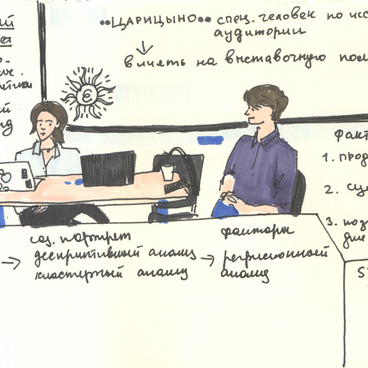 ••ЦАРИЦЫНО•• спец. человек по исс
аудитории
влиять на выставочную пол
ФАКТ
1. ПРОД
2. СЦ
3. поз
дле
соц. портрет
дескриптивный анализ
кластерный анализ
факторн
регрессионный
анализ
S